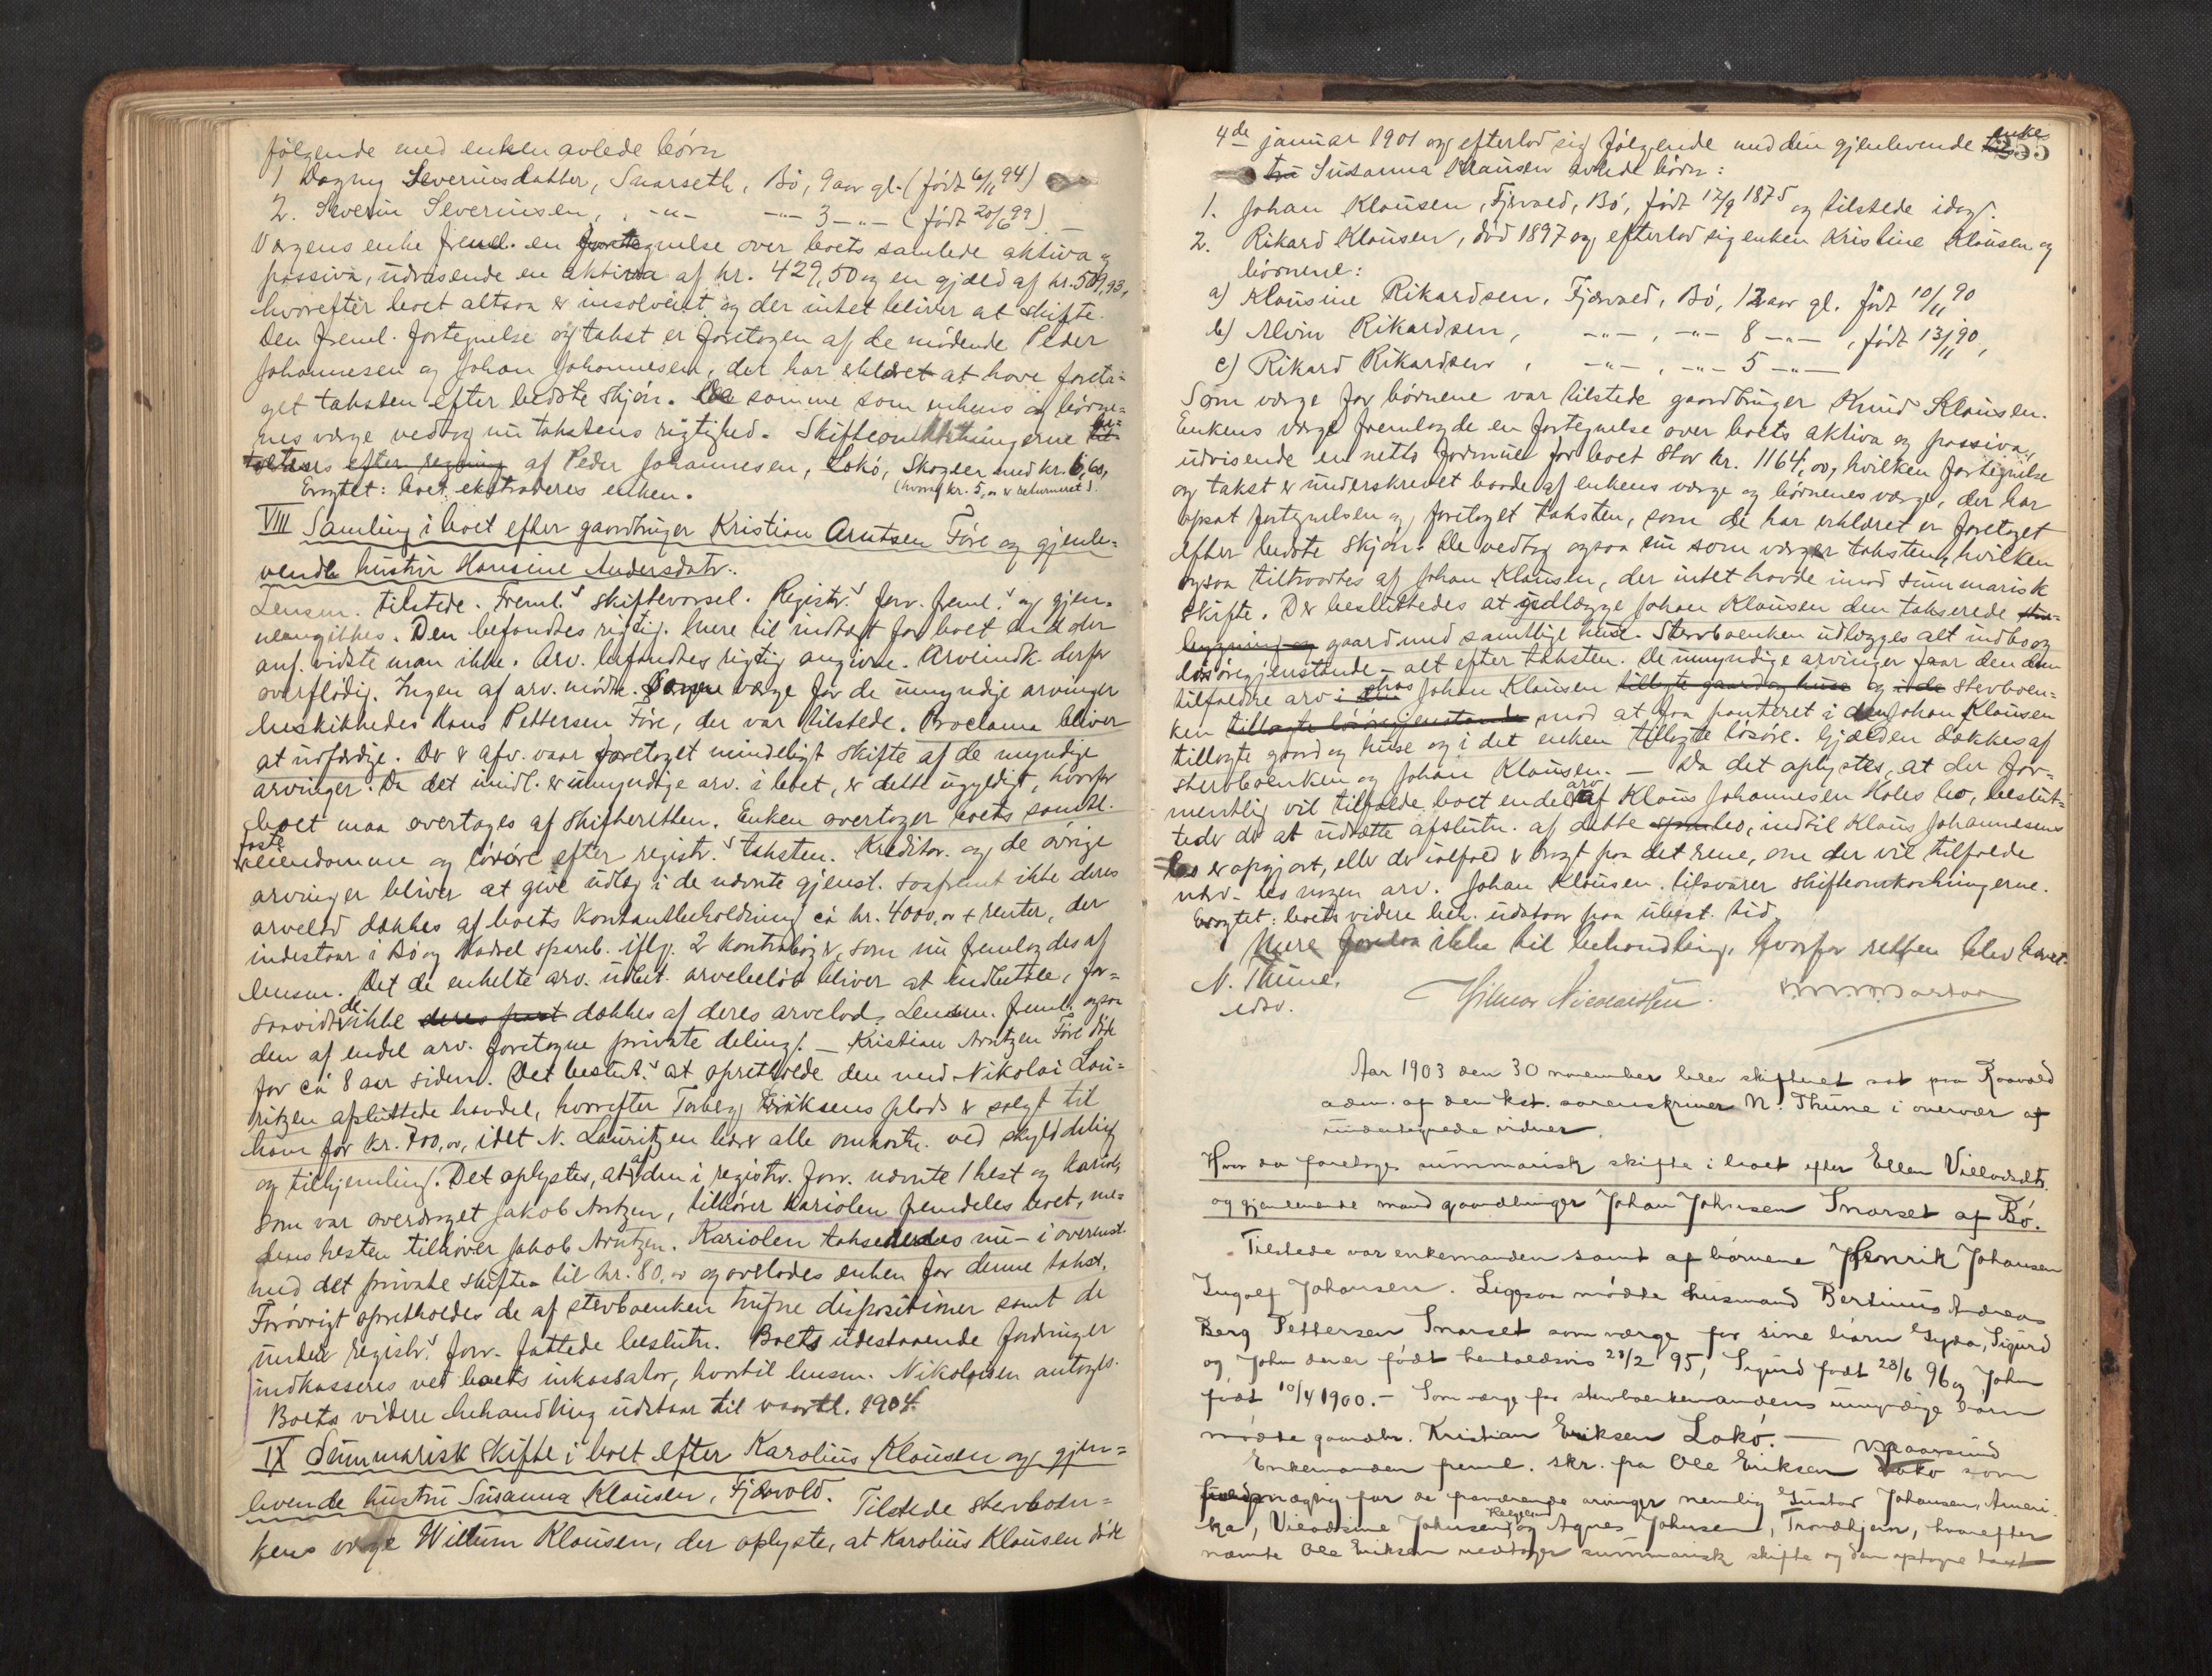 følgende med enken avlede børn
1 Dagny Severinsdatter, Snarseth, Bö, 9 aar gl. (født 6/11 94)
2. Severin Severinsen, -"- -"- 3 -"- (født 20/6 99). -
Værgens enke freml. en fortegnelse over boets samlede aktiva og
passiva, udvisende en aktiva af kr. 429,50 og en gjæld af kr. 509,93,
hvorefter boet altsaa er insolvent og der intet bliver at skifte.
Den freml. fortegnelse og takst er foretagen af de mødende Peder
Johannesen og Johan Johannesen, der har erklæret at have foreta=
get taksten efter bedste skjøn. De samme som enkens og børne=
nes værge vedtog nu takstens rigtighed. Skifteomkostningerne
efter regning af Peder Johannesen, Lokö, Skagen med kr. 6,60,
(hvoraf kr. 5,00 er returneret).
Eragtet: boet ekstraderes enken.
VIII Samling i boet efter gaardbruger Kristian Arntsen Føre og gjenle=
vende hustru Hansine Andersdatr.
Lensm. tilstede. Freml.s skiftevarsel. Registr.s forr. freml.s og gjen=
nemgikkes. Den befandtes rigtig. Mere til indtægt for boet end der
anf. vidste man ikke. Arv. befandtes rigtig angivne. Arveindk. derfor
overflödig. Ingen af arv. mödte. Som værge for de umyndige arvinger
beskikkedes Hans Pettersen Före, der var tilstede. Proclama bliver
at udfærdige. Der er afv. vaar foretaget mindeligt skifte af de myndige
arvinger. Da det imidl. er umyndige arv. i boet, er dette ugyldigt, hvorfor
boet maa overtages af skifteretten. Enken overtager boets samtl.
faste
eiendomme og lösöre efter registr.s taksten. Kreditor. og de øvrige
arvinger bliver at give udlæg i de nævnte gjenst. saafremt ikke deres
arvelod dækkes af boets kontantbeholdning ca kr. 4000,00 + renter, der
indestaar i Bö og Hadsel spareb. iflg. 2 kontrabøger, som nu fremlagdes af
lensm. Det de enkelte arv. udbet. arvebeløb bliver at indbetale, for=
saavidt de ikke deres part dækkes af deres arvelod. Lensm. freml. ogsaa
den af endel arv. foretagne private deling. - Kristian Arntzen Före döde
for ca 8 aar siden. Det beslut.s at opretholde den med Nikolai Lau=
ritzen afsluttede handel, hvorefter Torberg Eriksens plads er solgt til
ham for kr. 700,00, idet N. Lauritzen bærer alle omkostn. ved skylddeling
og tilhjemling. Det oplystes, at af den i registr. forr. nævnte 1 hest og kariol,
som var overdraget Jakob Arntzen, tilhører kariolen fremdeles boet, me=
dens hesten tilhører Jakob Arntzen. Kariolen takseredes nu - i overenst.
med det private skifte - til kr. 80,00 og overlodes enken for denne takst.
Forøvrigt opretholdes de af stervboenken trufne dispositioner samt de
under registr.s forr. fattede beslutn. Boets udestaaende fordringer
indkasseres ved boets inkassator, hvortil lensm. Nikolaisen antoges.
Boets videre behandling udstaar til vaartl. 1904.
IX Summarisk skifte i boet efter Karolius Klausen og gjen=
levende hustru Susanna Klausen, Fjærvold. Tilstede stervboen=
kens værge Willum Klausen, der oplyste, at Karolius Klausen døde
255
4de januar 1901 og efterlod sig følgende med den gjenlevende enke
Susanna Klausen avlede börn:
1. Johan Klausen, Fjærvold, Bö, født 12/9 1875 og tilstede idag.
2. Rikard Klausen, død 1897 og efterlod sig enken Kristine Klausen og
børnene:
a) Klausine Rikardsen, Fjærvold, Bö, 12 aar gl. født 10/11 90
b) Alvin Rikardsen, -"-, -"- 8 -"-, født 13/11 90,
c) Rikard Rikardsen, -"-, -"- 5 -"-
Som værge for børnene var tilstede gaardbruger Knud Klausen.
Enkens værge fremlagde en fortegnelse over boets aktiva og passiva,
udvisende en netto formue for boet stor kr. 1164,00, hvilken fortegnelse
og takst er underskrevet baade af enkens værge og børnenes værge, der har
opsat fortegnelsen og foretaget taksten, som de har erklæret er foretaget
efter bedste skjøn. De vedtog ogsaa nu som værger taksten, hvilken
ogsaa tiltraadtes af Johan Klausen, der intet havde imod summarisk
skifte. Der besluttedes at udlægge Johan Klausen den takserede
bygning og gaard med samtlige huse. Stervboenken udlægges alt indbo og
løsøregjenstande - alt efter taksten. De umyndige arvinger faar den dem
tilfaldne arv i hos Johan Klausen tillagte gaard og huse og stervboen=
ken tillagte løsøregjenstande mod at faa panteret i den Johan Klausen
tillagte gaard og huse og i det enken tillagte lösöre. Gjælden dækkes af
stervboenken og Johan Klausen. - Da det oplystes, at der for=
mentlig vil tilfalde boet endel arv af Klaus Johannesen Holes bo, beslut=
tedes det at udsætte afslutn. af dette bo, indtil Klaus Johannesens
bo er opgjort, eller det ialfald er bragt paa det rene, om der vil tilfalde
nærv. bo nogen arv. Johan Klausen tilsvarer skifteomkostningerne.
Eragtet: boets videre beh. udstaar paa ubest. tid.
Mere forelaa ikke til behandling, hvorfor retten blev hævet.
N. Thune.
edsv.
Hilmar Nicolaissen.
Aar 1903 den 30 november blev skifteret sat paa Raavold
adm. af den kst. sorenskriver N. Thune i overvær af
undertegnede vidner.
Hvor da foretoges summarisk skifte i boet efter Ellen Villadsdtr.
og gjenlevende mand gaardbruger Johan Johnsen Snarset af Bö.
Tilstede var enkemanden samt af börnene Henrik Johansen
Ingolf Johansen. Ligesaa mödte husmand Bertinus Andreas
Berg Pettersen Snarset som værge for sine barn Gyda, Sigurd
og John der er født henholdsvis 28/2 95, Sigurd født 28/6 96 og John
født 10/4 1900. - Som værge for stervboenkemandens umyndige barn
mödte gaardbr. Kristian Eriksen Lokö. -
Enkemanden freml. skr. fra Ole Eriksen Vaarsund som
fuldmægtig for de fraværende arvinger nemlig Gustav Johansen, Ameri=
ka, Vilodsine Johnsen og Agnes Johnsen, Trondhjem, hvorefter
nævnte Ole Eriksen vedtager summarisk skifte og den optagne takst